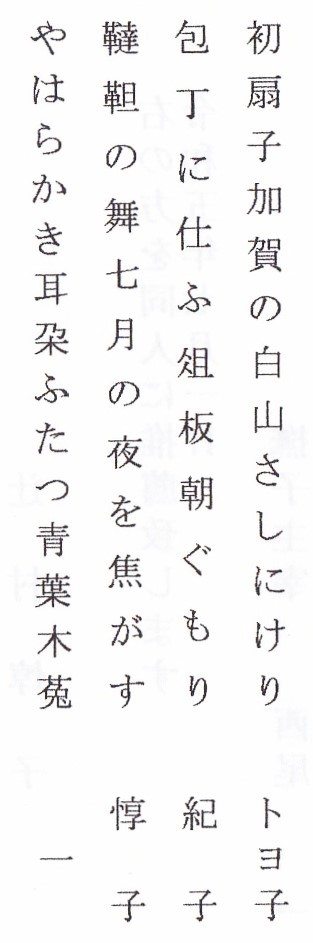 初扇子加賀の白山さしにけり　トヨ子
包丁に仕ふ俎板朝ぐもり　紀子
韃靼の舞七月の夜を焦がす　惇子
やはらかき耳朶ふたつ青葉木菟　一